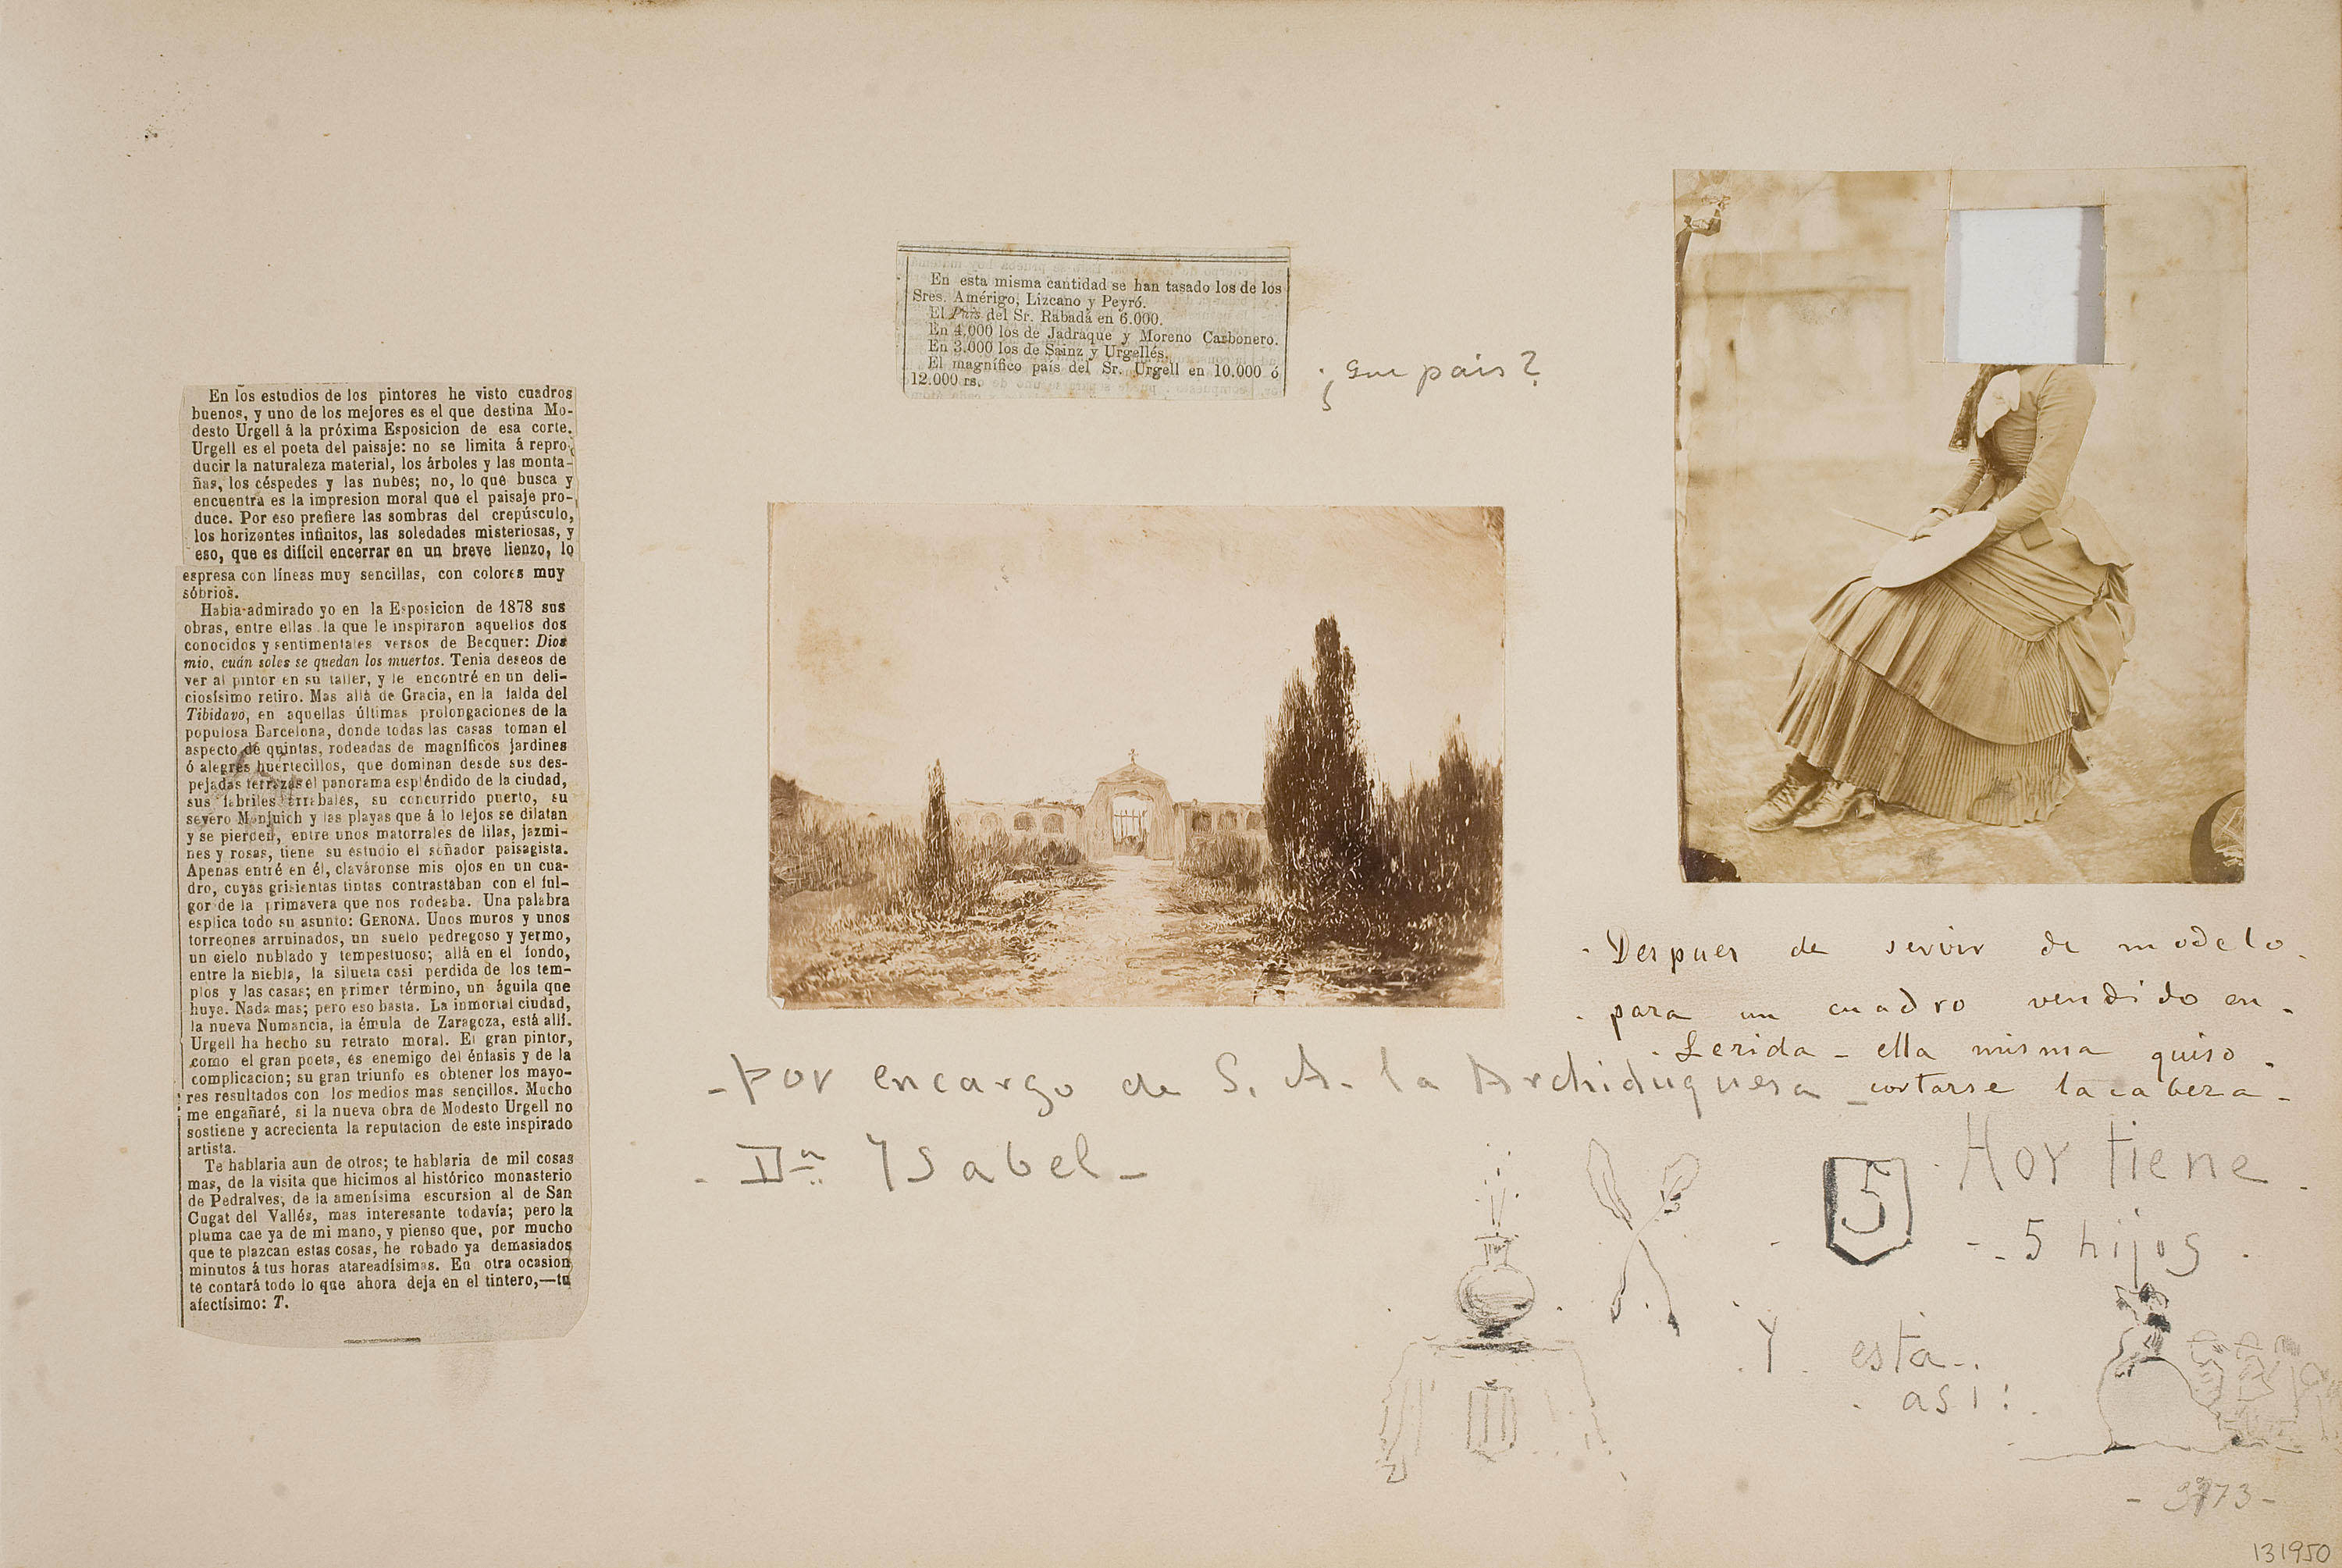 En los estudios de los pintores he visto cuadros
buenos, y uno de los mejores es el que destina Mo-
desto Urgell á la próxima Esposicion de esa corte.
Urgell es el poeta del paisaje: no se limita á repro-
ducir la naturaleza material, los árboles y las monta-
ñas, los céspedes y las nubes; no, lo que busca y
encuentra es la impresion moral que el paisaje pro-
duce. Por eso prefiere las sombras del crepúsculo,
los horizontes infinitos, las soledades misteriosas, y
eso, que es difícil encerrar en un breve lienzo, lo
espresa con líneas muy sencillas, con colores muy
sóbrios.
Habia admirado yo en la Esposicion de 1878 sus
obras, entre ellas la que le inspiraron aquellos dos
conocidos y sentimentales versos de Becquer: Dios
mio, cuán solos se quedan los muertos. Tenia deseos de
ver al pintor en su taller, y le encontré en un deli-
ciosísimo retiro. Mas allá de Gracia, en la falda del
Tibidavo, en aquellas últimas prolongaciones de la
populosa Barcelona, donde todas las casas toman el
aspecto de quintas, rodeadas de magníficos jardines
ó alegres huertecillos, que dominan desde sus des-
pejadas terrazas el panorama espléndido de la ciudad,
sus fabriles arrabales, su concurrido puerto, su
severo Monjuich y las playas que á lo lejos se dilatan
y se pierden, entre unos matorrales de lilas, jazmi-
nes y rosas, tiene su estudio el soñador paisagista.
Apenas entré en él, claváronse mis ojos en un cua-
dro, cuyas grisientas tintas contrastaban con el ful-
gor de la primavera que nos rodeaba. Una palabra
esplica todo su asunto: GERONA. Unos muros y unos
torreones arruinados, un suelo pedregoso y yermo,
un cielo nublado y tempestuoso; allá en el fondo,
entre la niebla, la silueta casi perdida de los tem-
plos y las casas; en primer término, un águila que
huye. Nada mas; pero eso basta. La inmortal ciudad,
la nueva Numancia, la émula de Zaragoza, está allí.
Urgell ha hecho su retrato moral. El gran pintor,
como el gran poeta, es enemigo del énfasis y de la
complicacion; su gran triunfo es obtener los mayo-
res resultados con los medios mas sencillos. Mucho
me engañaré, si la nueva obra de Modesto Urgell no
sostiene y acrecienta la reputacion de este inspirado
artista.
Te hablaria aun de otros; te hablaria de mil cosas
mas, de la visita que hicimos al histórico monasterio
de Pedralves, de la amenísima escursion al de San
Cugat del Vallés, mas interesante todavía; pero la
pluma cae ya de mi mano, y pienso que, por mucho
que te plazcan estas cosas, he robado ya demasiados
minutos á tus horas atareadísimas. En otra ocasion
te contará todo lo que ahora deja en el tintero,—tu
afectísimo: T.
En esta misma cantidad se han tasado los de los
Sres. Amérigo, Lizcano y Peyró.
El País del Sr. Rabadá en 6.000.
En 4.000 los de Jadraque y Moreno Carbonero.
En 3.000 los de Sainz y Urgellés.
El magnífico pais del Sr. Urgell en 10.000 ó
12.000 rs.
¿Que pais?
- por encargo de S. A. la Archiduquesa -
- Dª Ysabel -
- Despues de servir de modelo.
- para un cuadro vendido en -
- Lerida - ella misma quiso -
cortarse la cabeza -
5
Hoy tiene.
- 5 hijos.
Y está.
así:
- 3773 -
131950